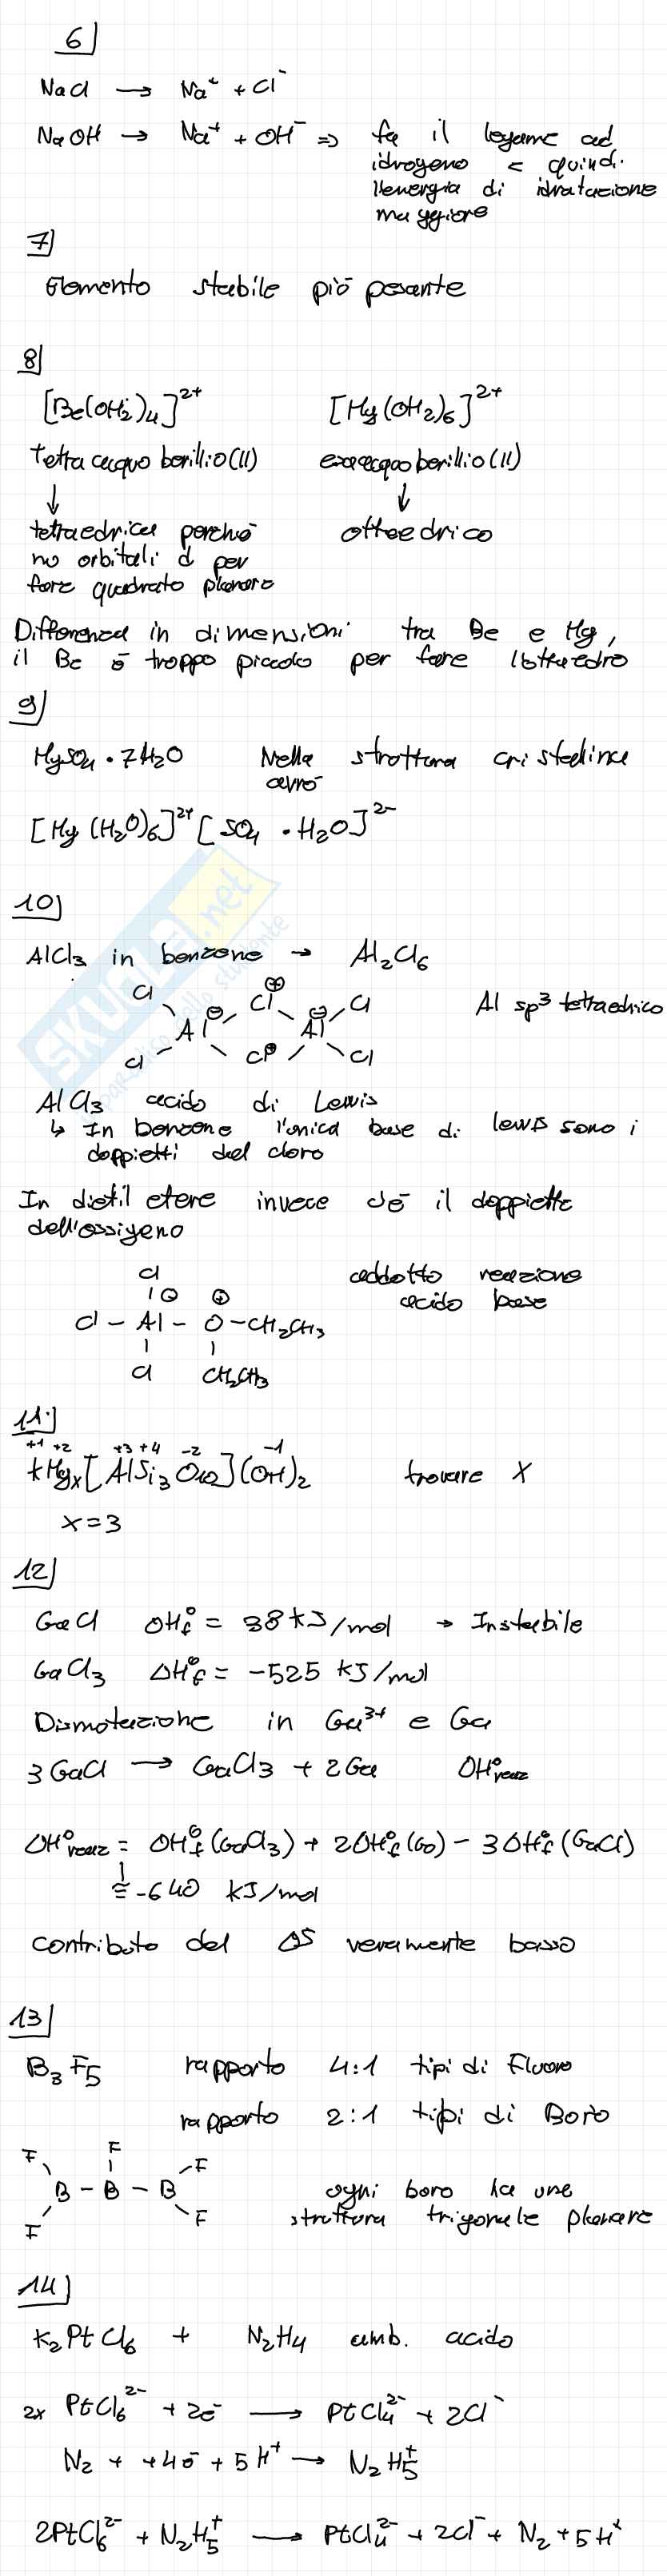 6)
NaCl → Na⁺ + Cl⁻
NaOH → Na⁺ + OH⁻ ⇒ fa il legame ad
idrogeno e quindi
l'energia di idratazione
maggiore
7)
Elemento stabile più pesante
8)
[Be(OH₂)₄]²⁺ [Mg(OH₂)₆]²⁺
tetraacquoberillio(II) esaacquoberillio(II)
↓ ↓
tetraedrica perché ottaedrico
no orbitali d per
fare quadrato planare
Differenza in dimensioni tra Be e Mg,
il Be è troppo piccolo per fare l'ottaedro
9)
MgSO₄ · 7H₂O Nella struttura cristallina
avrò
[Mg(H₂O)₆]²⁺ [SO₄ · H₂O]²⁻
10)
SKUOLA.net
paradiso dello studente
AlCl₃ in benzene → Al₂Cl₆
Cl Cl ⊕ Cl
Al ⊖ Al ⊖ Al sp³ tetraedrico
Cl Cl ⊕ Cl
AlCl₃ acido di Lewis
↳ In benzene l'unica base di lewis sono i
doppietti del cloro
In dietil etere invece c'è il doppietto
dell'ossigeno
Cl addotto reazione
| ⊖ ⊕ acido base
Cl – Al – O – CH₂CH₃
| |
Cl CH₂CH₃
11)
+1 +2 +3 +4 -2 -1
KMgₓ[AlSi₃O₁₀](OH)₂ trovare X
x = 3
12)
GaCl ΔH°f = 38 kJ/mol → Instabile
GaCl₃ ΔH°f = -525 kJ/mol
Dismutazione in Ga³⁺ e Ga
3GaCl → GaCl₃ + 2Ga ΔH°reaz
ΔH°reaz = ΔH°f(GaCl₃) + 2ΔH°f(Ga) - 3ΔH°f(GaCl)
≅ -640 kJ/mol
contributo del ΔS veramente basso
13)
B₃F₅ rapporto 4:1 tipi di Fluoro
rapporto 2:1 tipi di Boro
F F F
B – B – B ogni boro ha una
F F struttura trigonale planare
14)
K₂PtCl₆ + N₂H₄ amb. acido
2x PtCl₆²⁻ + 2e⁻ → PtCl₄²⁻ + 2Cl⁻
N₂ + +4e⁻ + 5H⁺ → N₂H₅⁺
2PtCl₆²⁻ + N₂H₅⁺ → PtCl₄²⁻ + 2Cl⁻ + N₂ + 5H⁺